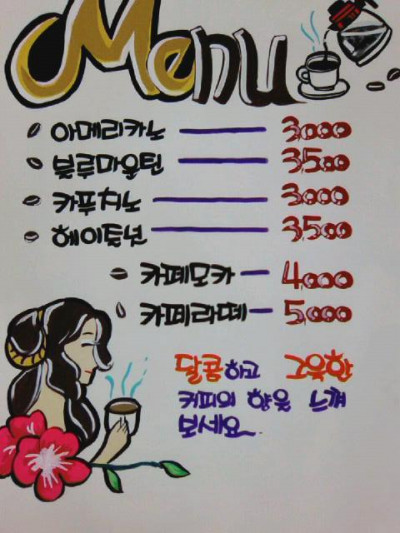 Menu
아메리카노 3000
블루마운틴 3500
카푸치노 3000
헤이즐넛 3500
카페모카 4000
카페라떼 5000
달콤하고 그윽한
커피의 향을 느껴
보세요~